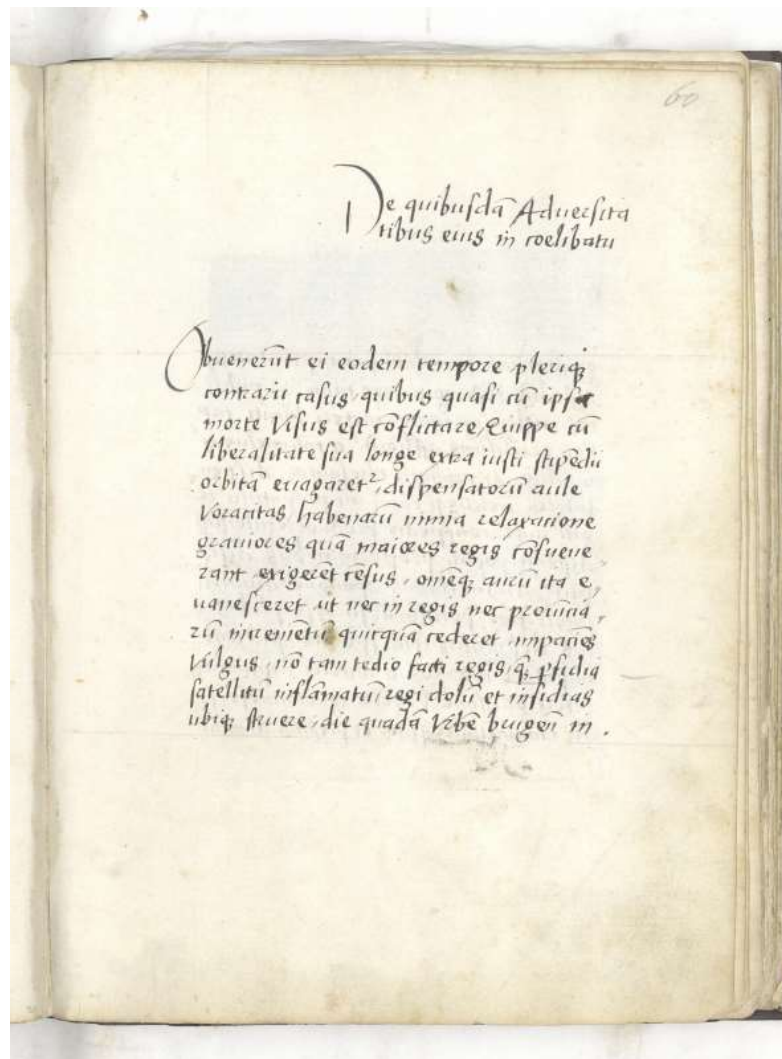 60
De quibusdā Aduersita
tibus eius in coelibatu
Obuenerūt ei eodem tempore pleriqꝫ
contrarii casus, quibus quasi cū ipsa
morte Visus est cōflictare, Quippe cū
liberalitate sua longe extra iusti stipēdii
orbitā euagaretᷣ, dispensatorū aule
Voracitas habenarū nimia relaxacione
grauiores quā maiores regis cōsueue
rant exigeret cēsus, omēqꝫ aurū ita e,
uanesceret ut nec in regis nec prouincia,
rū incremētū quicquā cederet, impaciēs
Vulgus, nō tam tedio facti regis, qꝫ ꝑfidia
satellitū inflāmatū, regi dolū et insidias
ubiqꝫ struere, die quadā Vrbē brugeñ in.